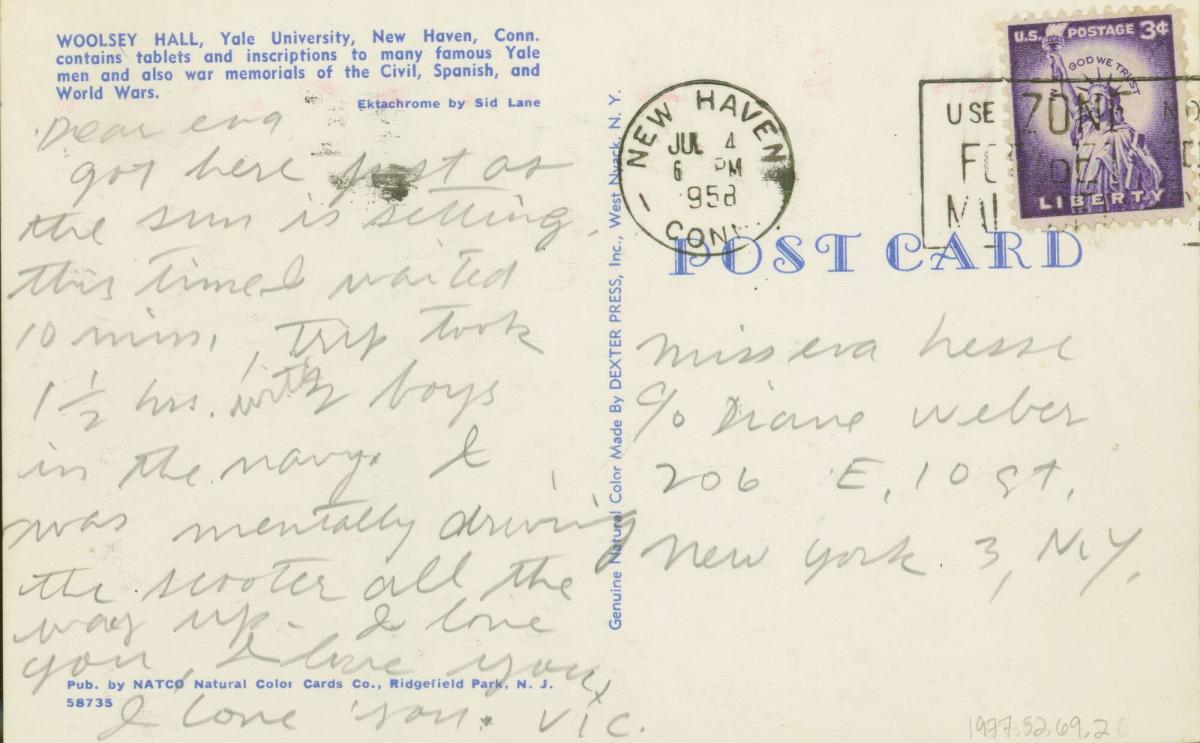 WOOLSEY HALL, Yale University, New Haven, Conn.
contains tablets and inscriptions to many famous Yale
men and also war memorials of the Civil, Spanish, and
World Wars.
Ektachrome by Sid Lane
Dear eva
got here just as
the sun is setting.
this time I waited
10 mins, trip took
1 1/2 hrs. with boys
in the navy. I
was mentally driving
the scooter all the
way up. I love
you, I love you,
I love you. Vic.
Pub. by NATCO Natural Color Cards Co., Ridgefield Park, N. J.
58735
Genuine Natural Color Made By DEXTER PRESS, Inc., West Nyack, N. Y.
NEW HAVEN
JUL 4
6 PM
1958
CONN.
U.S. POSTAGE 3¢
IN GOD WE TRUST
LIBERTY
USE ZONE NO
POST CARD
miss eva hesse
c/o Diane weber
206 E. 10 st.
new york 3, N.Y.
1977.52.69.26